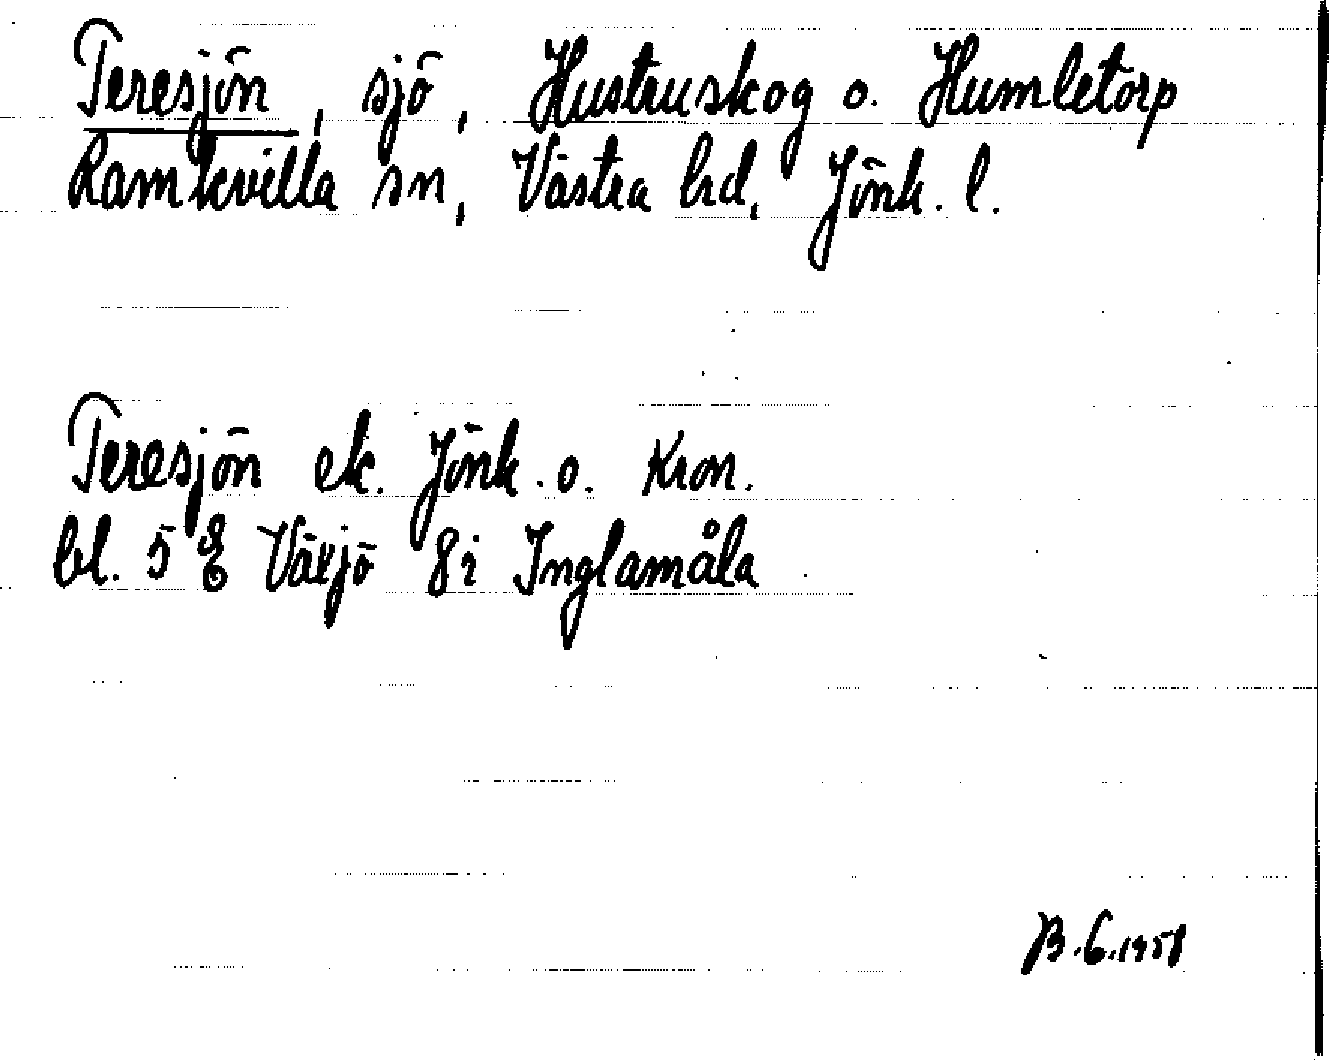 Teresjön, sjö, Hustruskog o. Humletorp
Ramkvilla sn, Västra hd, Jönk. l.
Teresjön ek. Jönk. o. Kron.
bl. 5 E Växjö 8i Inglamåla
B.G. 1951